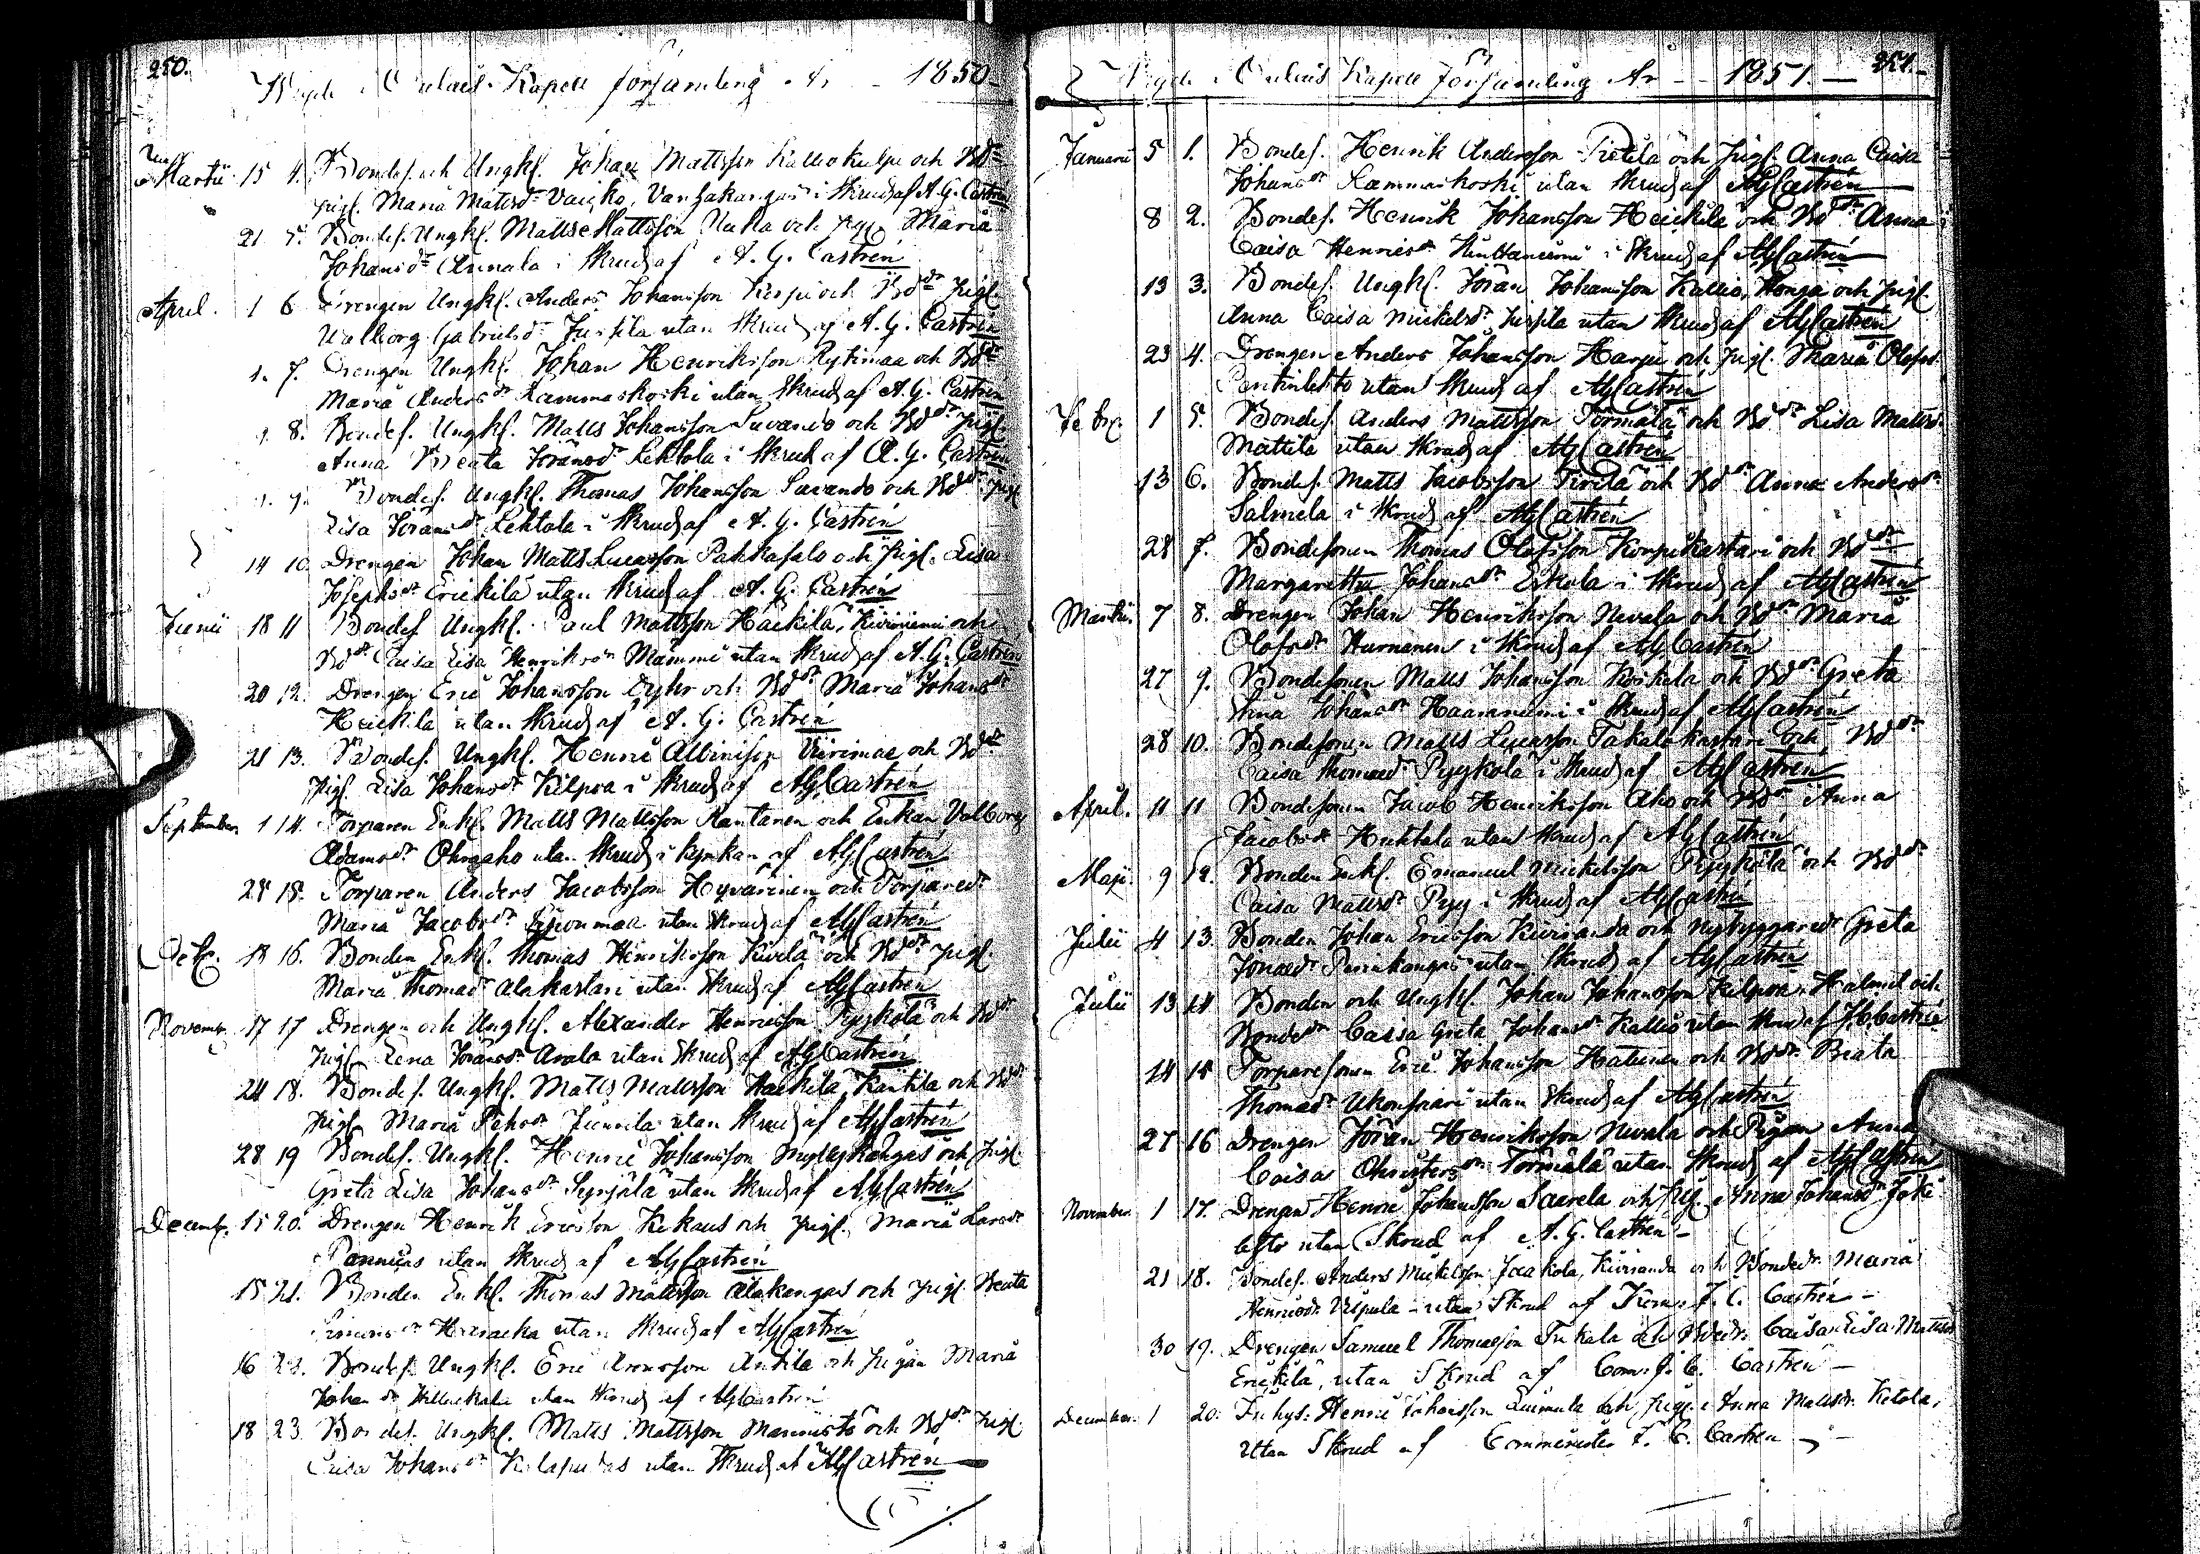 250.
Wigde i Pulais Kapell församling År 1850
Martii 15 4. Bondes. och Ungkl. Johan Mattsson Kalliokulju och Bddr
pigl. Maria Mattsdr Vaicko, Vanhakangas i Skrud af A. G. Castrén
21 5. Bondes. Ungkl. Matts Mattsson och pigl. Maria
Johansdr Annala i Skrud af A. G. Castrén
April. 1 6 Drengen Ungkl. Anders Johansson och Bddr pigl.
Walborg Gabrielsdr Jussila utan Skrud af A. G. Castrén
1. 7. Drengen Ungkl. Johan Henriksson Rytimaa och Bddr
Maria Andersdr Lammaskoski utan Skrud af A. G. Castrén
1. 8. Bondes. Ungkl. Matts Johansson Suvando och Bddr pigl.
Anna Beata Göransdr Lehtola i Skrud af A. G. Castrén
1. 9. Bondes. Ungkl. Thomas Johansson Suvando och Bddr pigl
Lisa Göransdr Lehtola i Skrud af A. G. Castrén
14 10. Drengen Johan Matts Lucasson Pahkasalo och pigl. Lisa
Josephsdr Erickilä utan Skrud af A. G. Castrén
Junii 18 11 Bondes Ungkl. Paul Mattsson Häckilä, Kiviniemi och
Bddr Caisa Lisa Henriksdr Mämmi utan Skrud af A. G. Castrén
20 12. Drengen Eric Johansson och Bddr Maria Johansdr
Heickilä utan Skrud af A. G. Castrén
21 13. Bondes. Ungkl. Henric Albinsson Viirimaa och Bddr
pigl. Lisa Johansdr Kilpua i Skrud af AGCastrén
September 1 14. Torparen Enkl. Matts Mattsson Rantanen och Enkan Valborg
Adamsdr Ohraaho utan Skrud i kyrkan af AGCastrén
28 15. Torparen Anders Jacobsson Hyvärinen och Torparedr
Maria Jacobsdr utan Skrud af AGCastrén
Octbr. 18 16. Bonden Enkl. Thomas Henriksson Kivelä och Bddr pigl.
Maria Thomasdr Alakastari utan Skrud af AGCastrén
Novembr 17 17 Drengen och Ungkl. Alexander Henricsson Pyykölä och Bddr
pigl Lena Göransdr Arala utan Skrud af AGCastrén
24 18. Bondes. Ungkl. Matts Mattsson Haekilä, Käntilä och Bddr
pigl. Maria Pehrsdr Junnila utan Skrud af AGCastrén
28 19 Bondes. Ungkl. Henric Johansson Myllykangas och pigl.
Greta Lisa Johansdr Syrjälä utan Skrud af AGCastrén
Decembr. 15 20. Drengen Henrich Ericsson Kokaus och pigl. Maria Larsdr
Pannicas utan Skrud af AGCastrén
15 21. Bonden Enkl. Thomas Mattsson Alakangas och pigl. Beata
Simonsdr utan Skrud af AGCastrén
16 22. Bondes. Ungkl. Eric Aronsson Anttila och pigan Maria
Johansdr utan Skrud af AGCastrén
18 23. Bondes. Ungkl. Matts Mattsson Mannistö och Bddr pigl
Caisa Johansdr Kalapudas utan Skrud af AGCastrén
251.
Wigde i Pulais Kapell församling År 1851.
Januarii 5 1. Bondes. Henrik Andersson Pietilä och pigl. Anna Caisa
Johansdr Lammaskoski utan Skrud af AGCastrén
8 2. Bondes. Henrik Johansson Heickilä och Bddr Anna
Caisa Henricsdr i Skrud af AGCastrén
13 3. Bondes. Ungkl. Jöran Johansson Kallio, Honga och pigl.
Anna Caisa Mickelsdr Jussila utan Skrud af AGCastrén
23 4. Drengen Anders Johansson Harju och pigl. Maria Olofsdr
Pentinlehto utan Skrud af AGCastrén
Febr. 1 5. Bondes. Anders Mattsson Törmälä och Bddr Lisa Mattsdr
Mattila utan Skrud af AGCastrén
13 6. Bondes. Matts Jacobsson Tirilä och Bddr Anna Andersdr
Salmela i Skrud af AGCastrén
28 7. Bondesonen Thomas Olofsson Korpikastari och Bddr
Margaretha Johansdr Eskola i Skrud af AGCastrén
Martii. 7 8. Drengen Johan Henriksson Nevala och Bddr Maria
Olofsdr Hurnanen i Skrud af AGCastrén
27 9. Bondesonen Matts Johansson Koskela och Bddr Greta
Stina Johansdr Haaraniemi i Skrud af AGCastrén
28 10. Bondesonen Matts Lucasson Takalakastari och Bddr
Caisa Thomasdr Pyykölä i Skrud af AGCastrén
April. 11 11 Bondesonen Jacob Henriksson Aho och Bddr Anna
Jacobsdr Huhtala utan Skrud af AGCastrén
Maji. 9 12. Bonden Enkl. Emanuel Mickelsson Pyykölä och Bddr
Caisa Mattsdr Pyy i Skrud af AGCastrén
Julii 4 13. Bonden Johan Ericsson Kivirända och Nybyggaredr Greta
Jonasdr Purinkangas utan Skrud af AGCastrén
Julii 13 14 Bonden och Ungkl. Johan Johansson Kilpua, Halmet och
Bondedr Caisa Greta Johansdr Kallio utan Skrud af J.C.Castrén
14 15 Torparesonen Eric Johansson Hatunen och Bddr Beata
Thomasdr Ukonsaari utan Skrud af AGCastrén
27 16 Drengen Jöran Henriksson Nevala och Pigan Anna
Caisa Christersdr Törmälä utan Skrud af AGCastrén
November. 1 17. Drengen Henric Johansson Saarela och pig. Anna Johansdr Joki
lehto utan Skrud af A. G. Castrén –
21 18. Bondes. Anders Mickelsson Jaakola, Kiviranda och Bondedr. Maria
Henricsdr Vilpula – utan Skrud af J. C. Castrén –
30 19. Drengen Samuel Thomasson Tukala och Bdedr. Caisa Lisa Mattsdr
Erickilä, utan Skrud af Com. J. C. Castrén –
December. 1 20. Inhys: Henric Johansson Luimula och pig. Anna Mattsdr. Ketola,
utan Skrud af Comminister J. C. Castrén –